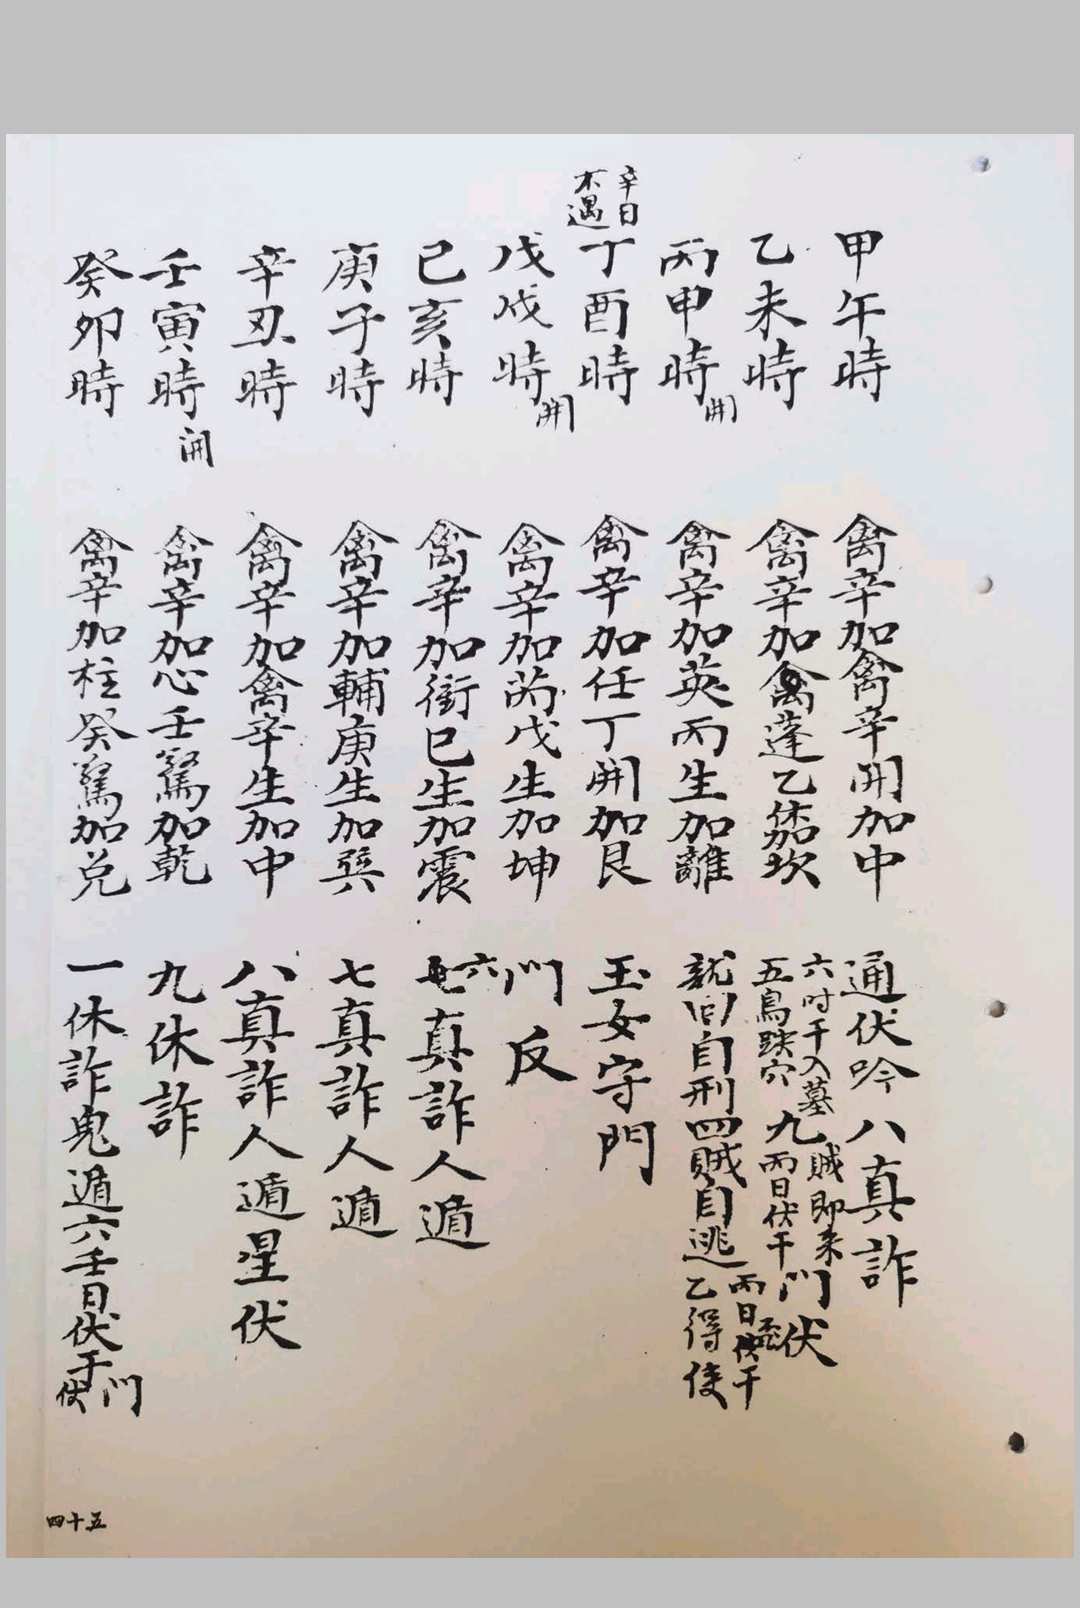 甲午時 禽辛加禽辛開加中 通伏吟八真詐
乙未時 禽辛加禽蓬乙休加坎 六时干入墓 五鳥跌穴 九 賊即来 丙日伏干 门伏
丙申時開 禽辛加英丙生加離 就向自刑四賊自逃 乙得使 丙日伏干
辛日不遇
丁酉時 禽辛加任丁開加艮 玉女守門
戊戌時開 禽辛加芮戊生加坤 门反
己亥時 禽辛加衝己生加震 六真詐人遁
庚子時 禽辛加輔庚生加巽 七真詐人遁
辛丑時 禽辛加禽辛生加中 八真詐人遁星伏
壬寅時開 禽辛加心壬驚加乾 九休詐
癸卯時 禽辛加柱癸驚加兑 一休詐鬼遁六壬日伏干门伏
四十五